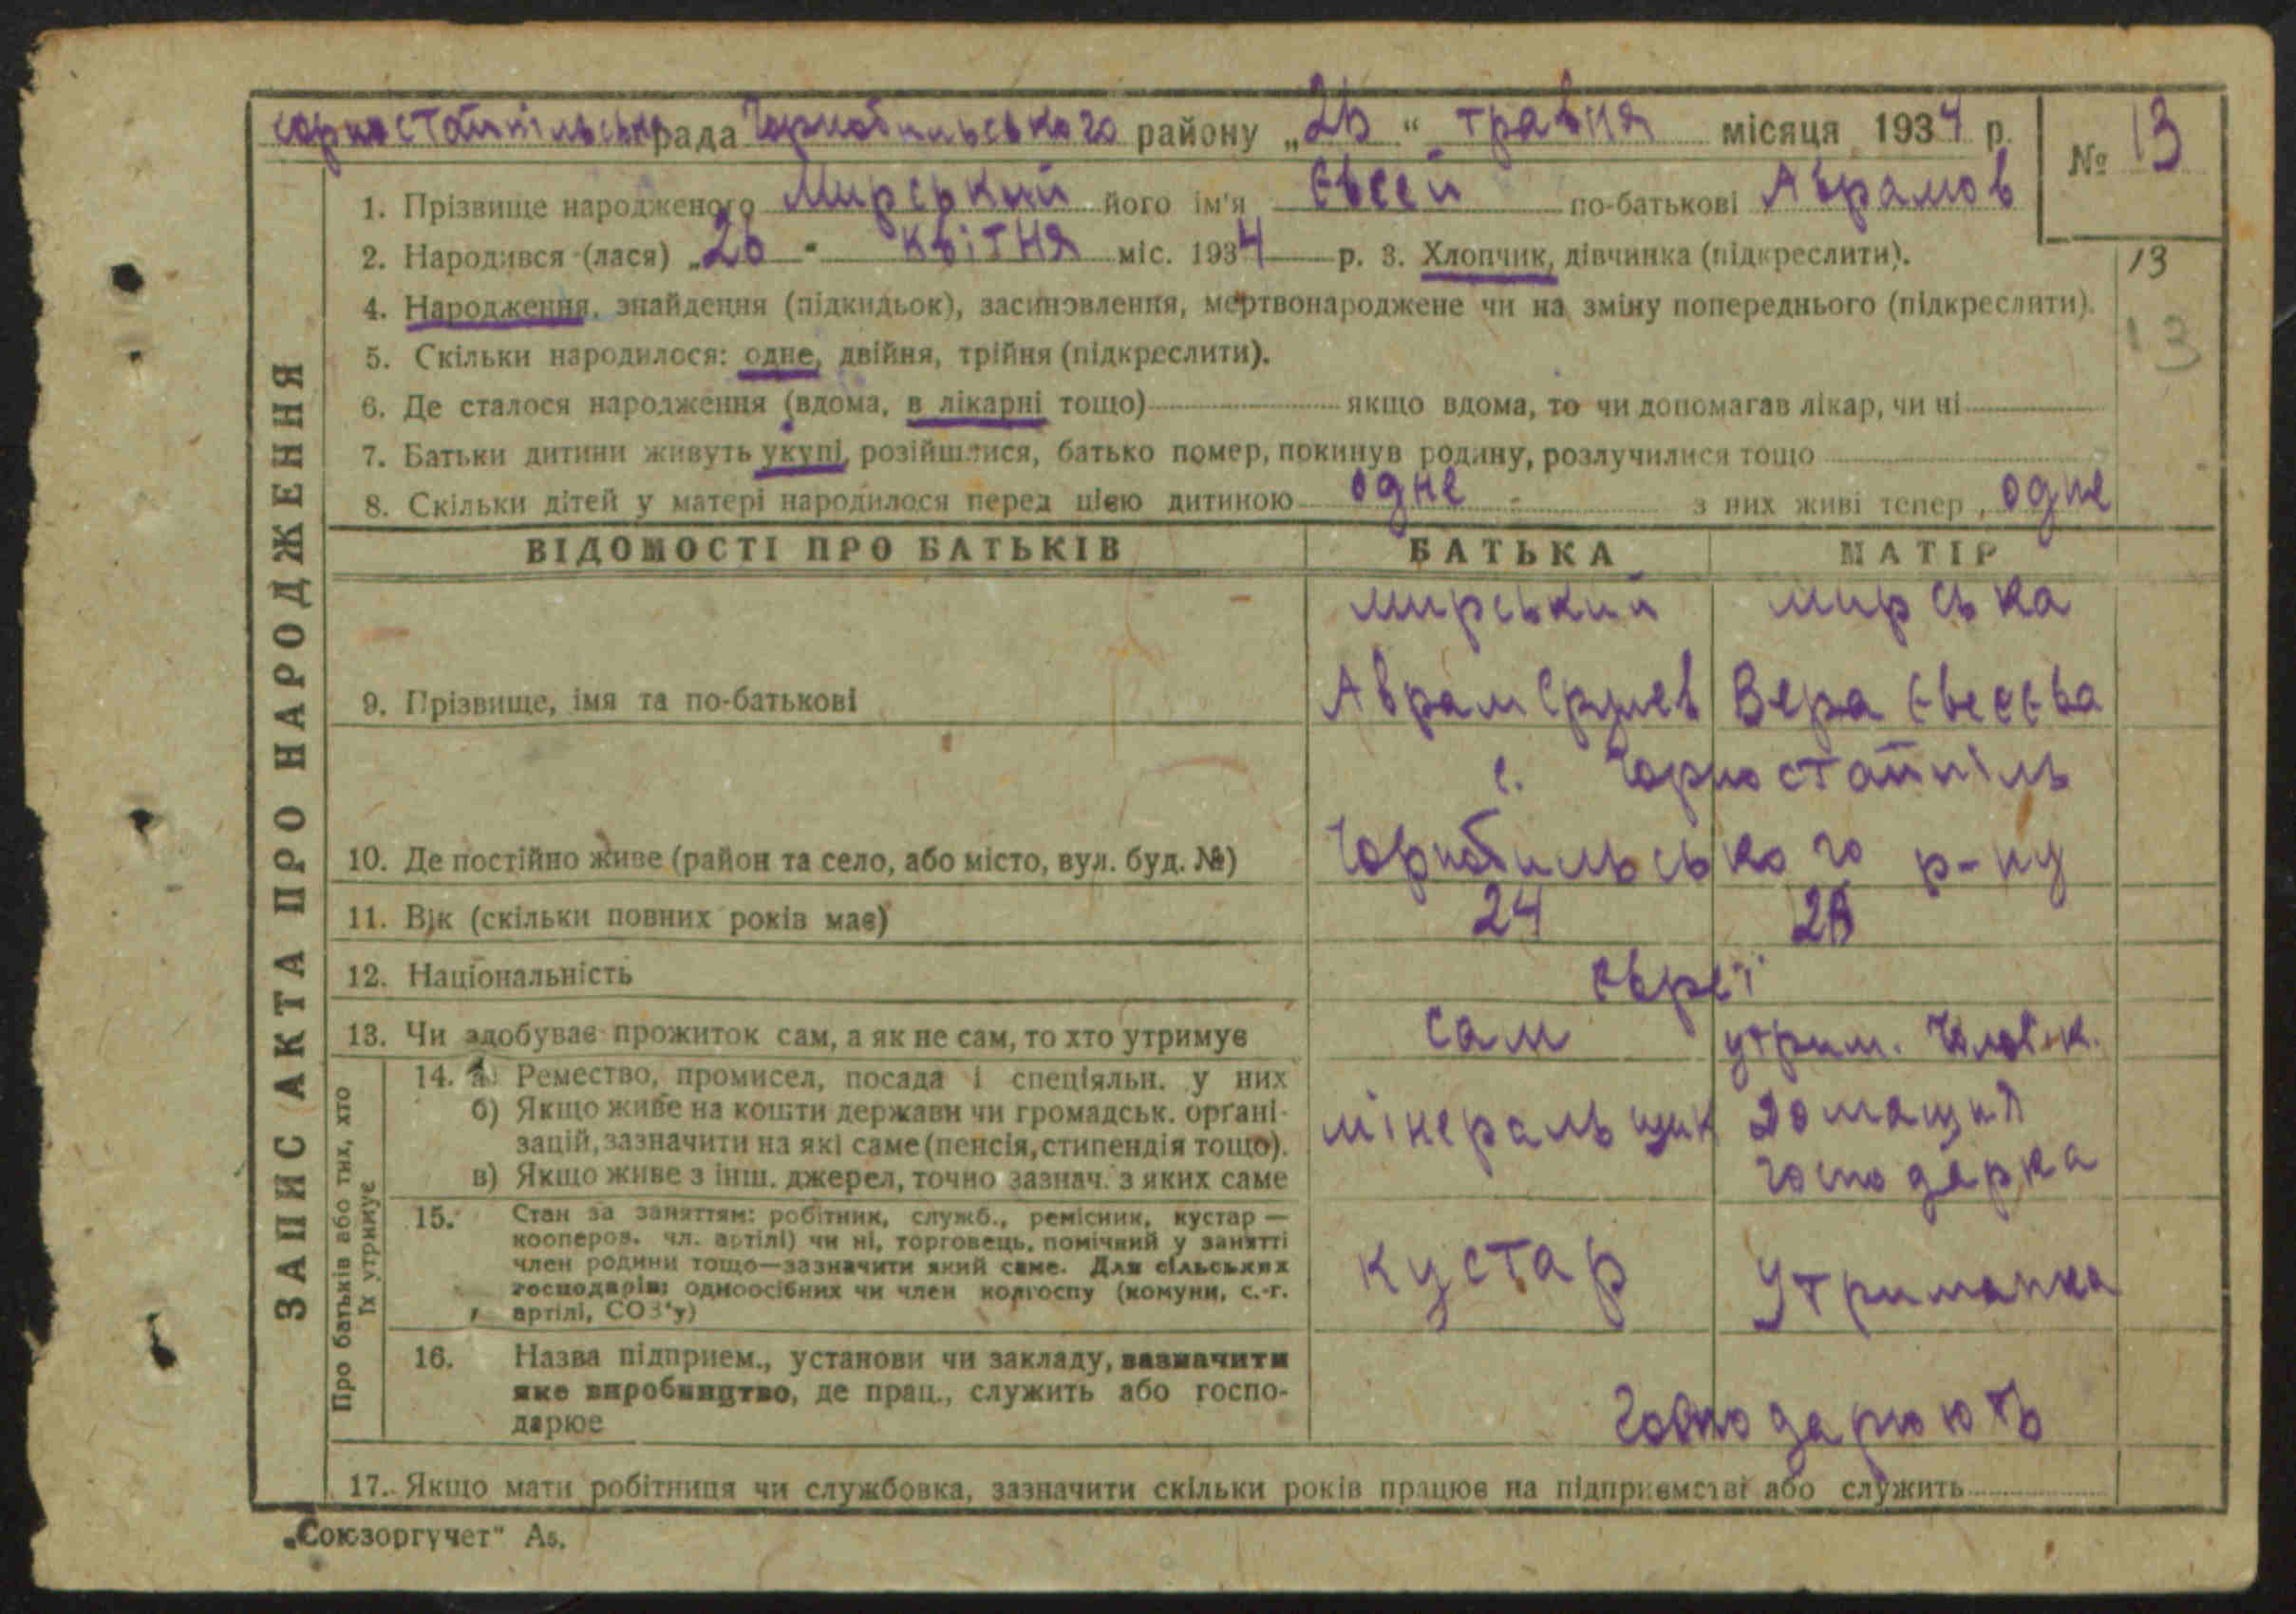 горностайпільська рада Чорнобильського району „26“ травня місяця 1934 р.
№ 13
1. Прізвище народженого Мирський його ім'я Євсей по-батькові Аврамов
2. Народився (лася) „26 " квітня міс. 1934 р. 3. Хлопчик, дівчинка (підкреслити).
13
4. Народження, знайдення (підкидьок), засиновлення, мертвонароджене чи на зміну попереднього (підкреслити).
13
5. Скільки народилося: одне, двійня, трійня (підкреслити).
6. Де сталося народження (вдома, в лікарні тощо) якщо вдома, то чи допомагав лікар, чи ні
7. Батьки дитини живуть укупі, розійшлися, батько помер, покинув родину, розлучилися тощо
8. Скільки дітей у матері народилося перед цією дитиною одне з них живі тепер, одне
ЗАПИС АКТА ПРО НАРОДЖЕННЯ
ВІДОМОСТІ ПРО БАТЬКІВ БАТЬКА МАТІР
мирський мирська
9. Прізвище, імя та по-батькові Аврам Вера Євсеєва
с. Горностайпіль
10. Де постійно живе (район та село, або місто, вул. буд. №) Чорнобильського р-ну
11. Вік (скільки повних років має) 24
12. Національність євреї
13. Чи здобуває прожиток сам, а як не сам, то хто утримує сам утрим. Чоловік.
Про батьків або тих, хто
їх утримує
14. а) Ремество, промисел, посада і спеціяльн. у них
б) Якщо живе на кошти держави чи громадськ. органі-
зацій, зазначити на які саме (пенсія, стипендія тощо). мінеральщик домашня
в) Якщо живе з інш. джерел, точно зазнач. з яких саме господарка
15. Стан за заняттям: робітник, служб., ремісник, кустар —
кооперов. чл. артілі) чи ні, торговець, помічний у занятті
член родини тощо—зазначити який саме. Для сільських
господарів: одноосібних чи член колгоспу (комуни, с.-г.
артілі, СОЗ'у) кустар Утриманка
16. Назва підприєм., установи чи закладу, зазначити
яке виробництво, де прац., служить або госпо-
дарює господарюють
17. Якщо мати робітниця чи службовка, зазначити скільки років працює на підприємстві або служить
„Союзоргучет" А5.